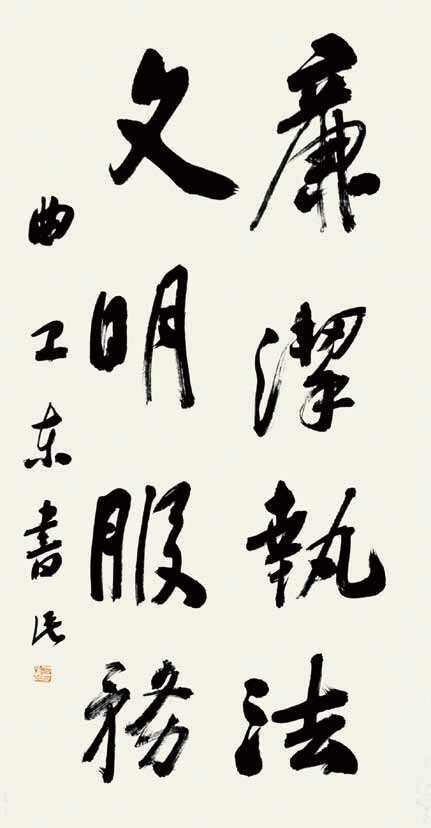 廉潔執法
文明服務
曲工東書